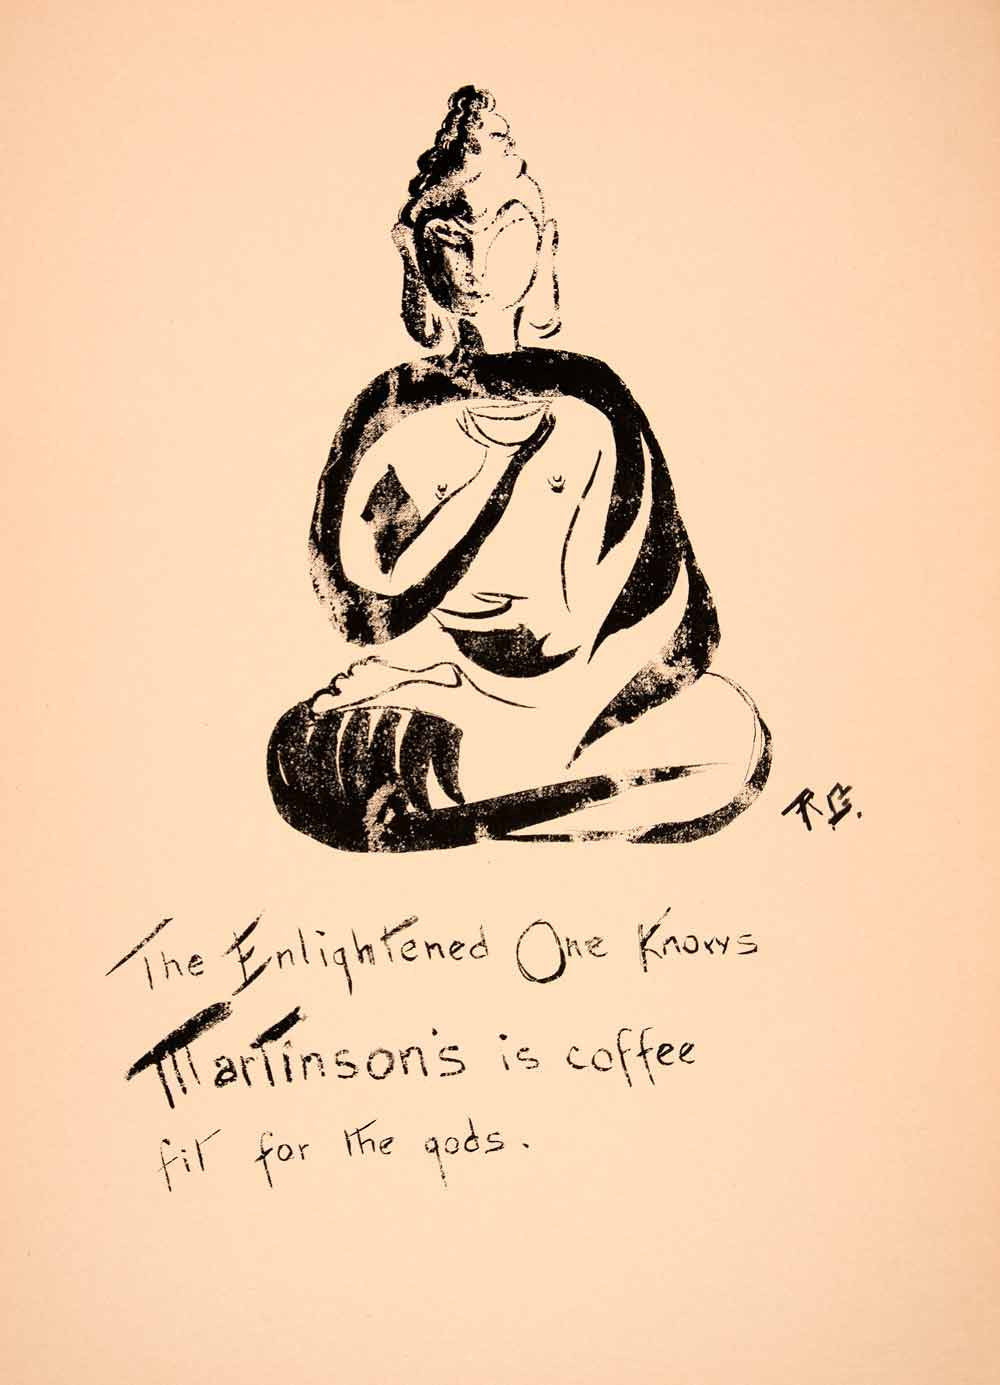 R G.
The Enlightened One Knows
Martinson's is coffee
fit for the gods.